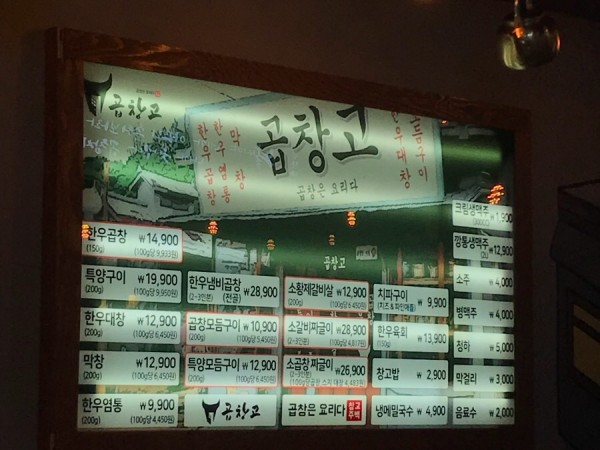 곱창고
곱창고
곱창은 요리다
막창
한우염통
한우곱창
모듬구이
한우대창
곱창고
한우곱창 ₩14,900
(150g) (100g당 9,933원)
특양구이 ₩19,900
(200g) (100g당 9,950원)
한우대창 ₩12,900
(200g) (100g당 6,450원)
막창 ₩12,900
(200g) (100g당 6,450원)
한우염통 ₩9,900
(200g) (100g당 4,450원)
한우냄비곱창 ₩28,900
(2~3인분) (전골)
곱창모듬구이 ₩10,900
(200g) (100g당 5,450원)
특양모듬구이 ₩12,900
(200g) (100g당 6,450원)
곱창고
소황제갈비살 ₩12,900
(200g) (100g당 6,450원)
소갈비짜글이 ₩28,900
(2~3인분)
소곱창짜글이 ₩26,900
(2~3인분)
곱창은 요리다
치파구이 ₩9,900
(치즈 & 파인애플)
한우육회 ₩13,900
(150g)
창고밥 ₩2,900
냉메밀국수 ₩4,900
크림생맥주 ₩1,900
깡통생맥주 ₩12,900
소주 ₩4,000
병맥주 ₩4,000
청하 ₩5,000
막걸리 ₩3,000
음료수 ₩2,000